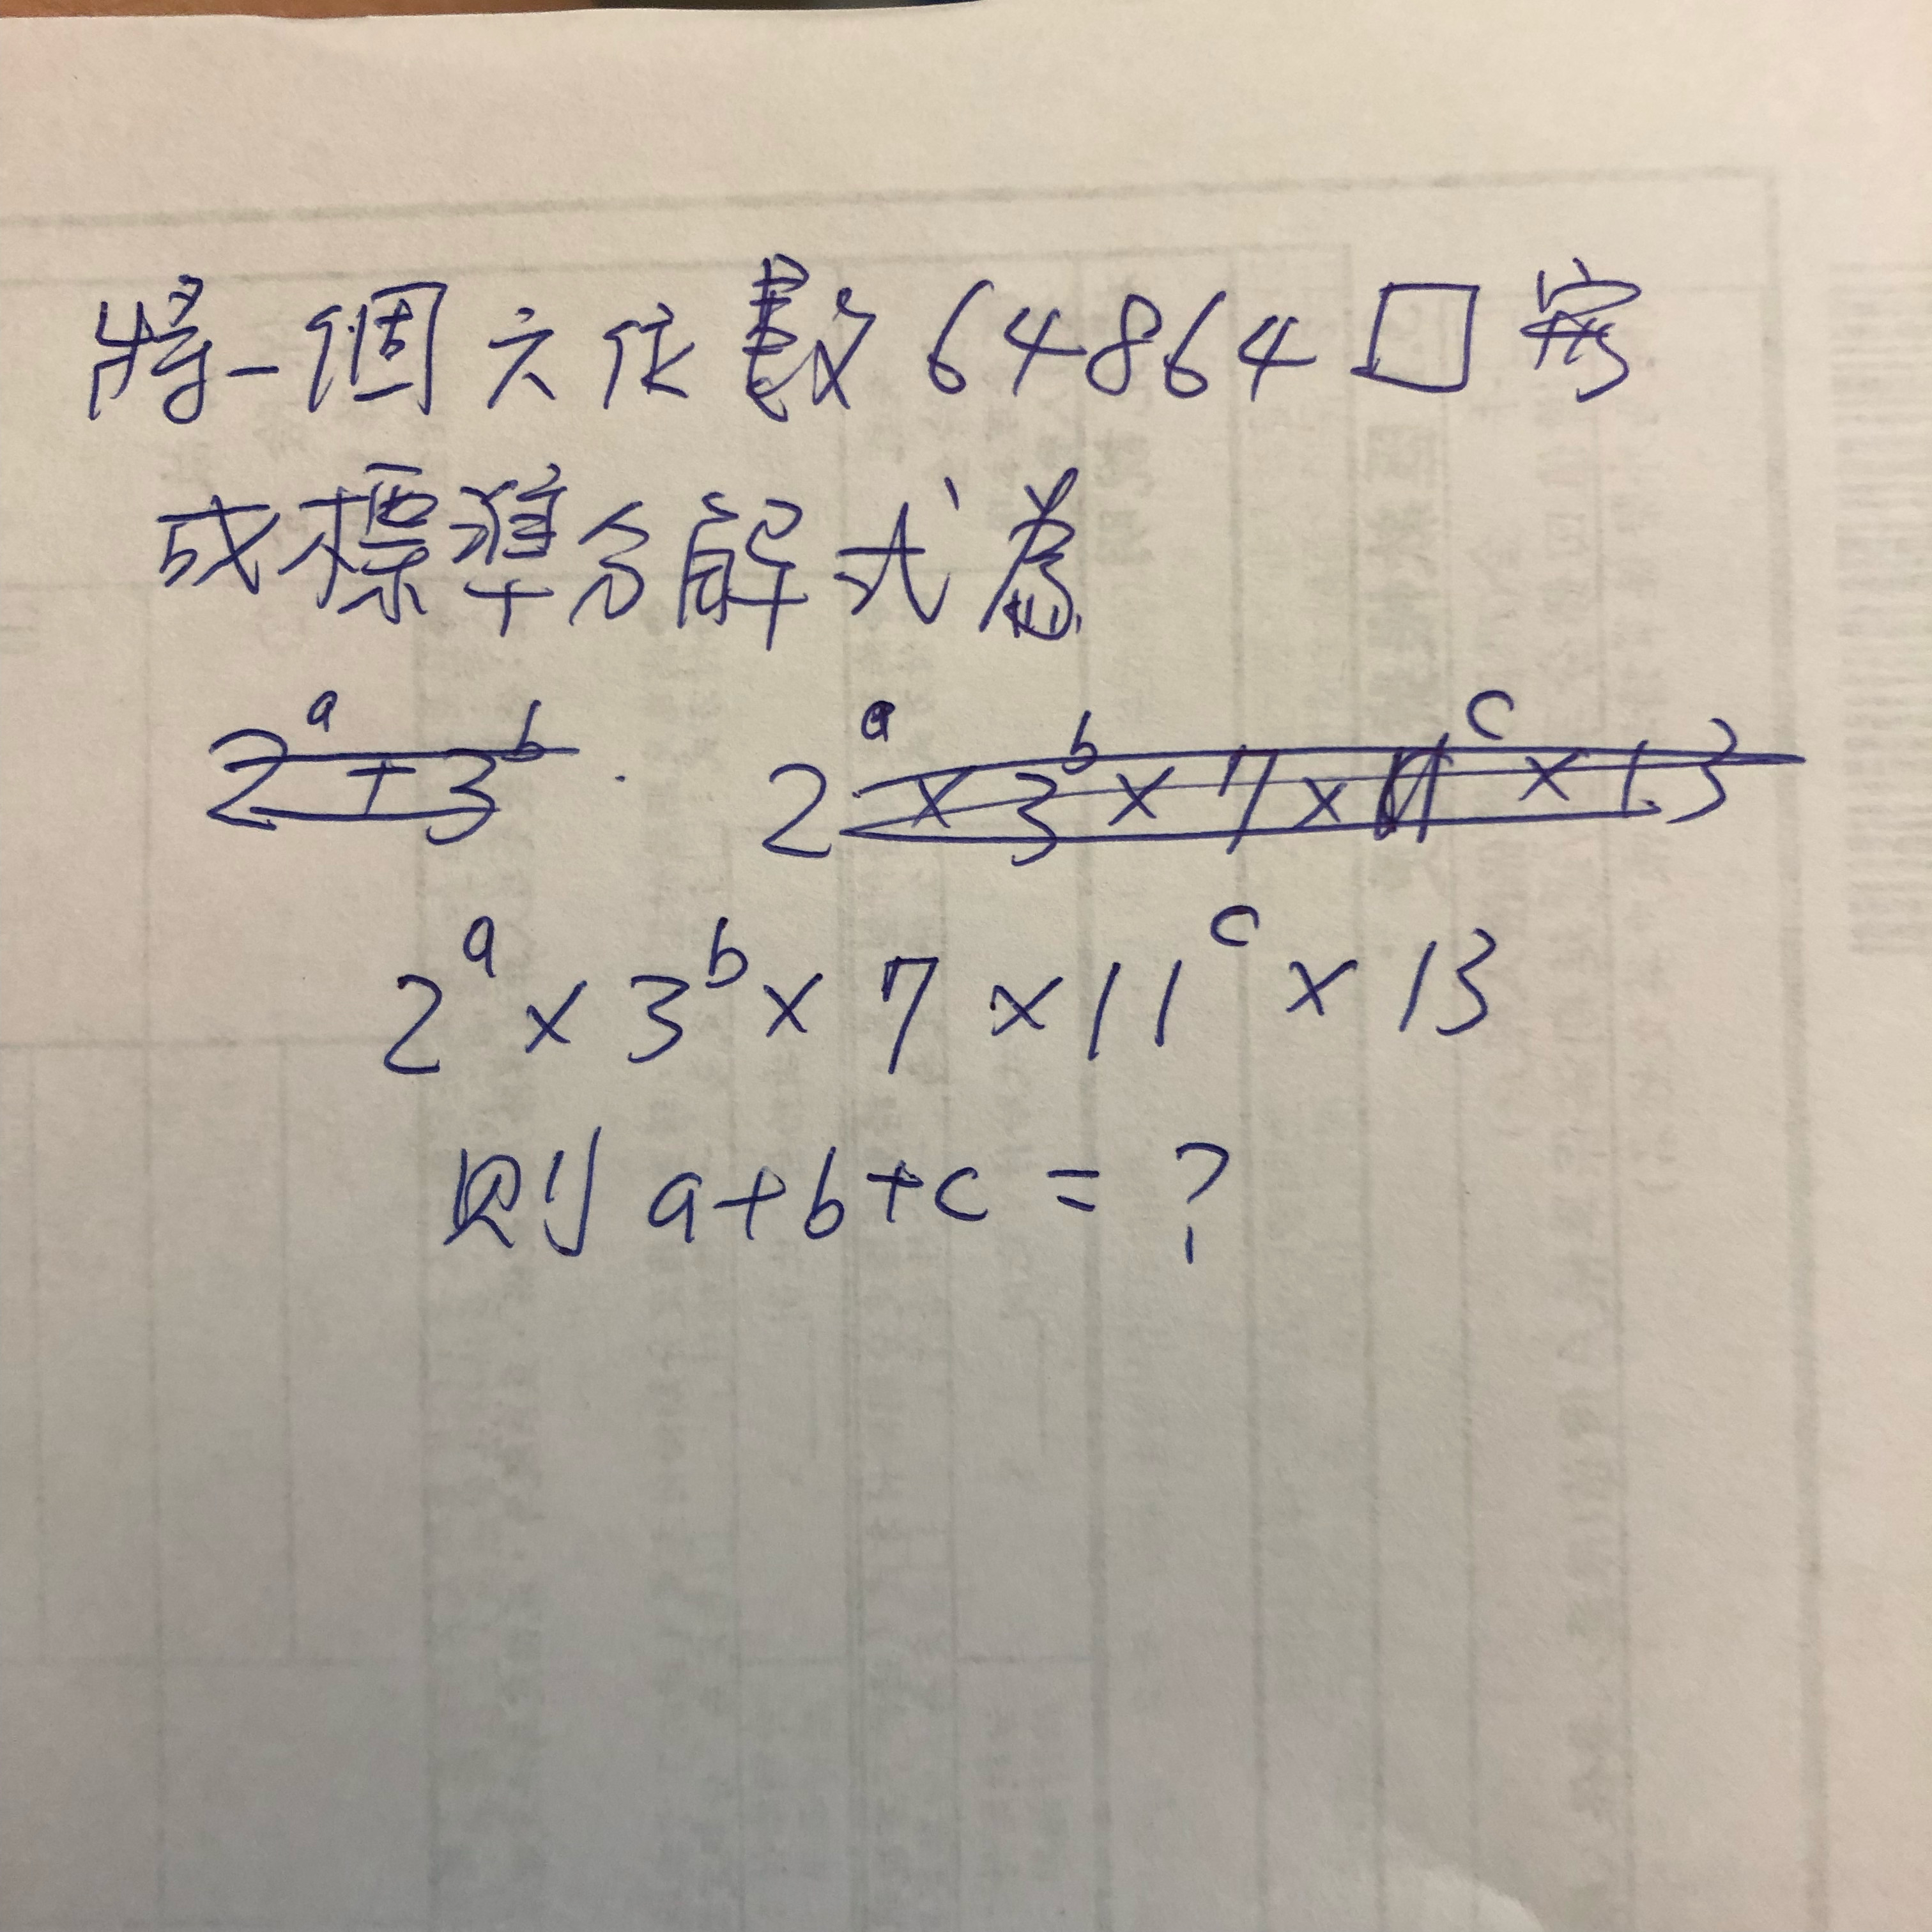 將一個六位數64864□寫
成標準分解式為
2^a+3^b . 2^a×3^b×7×11^c×13
2^a×3^b×7×11^c×13
則a+b+c=?